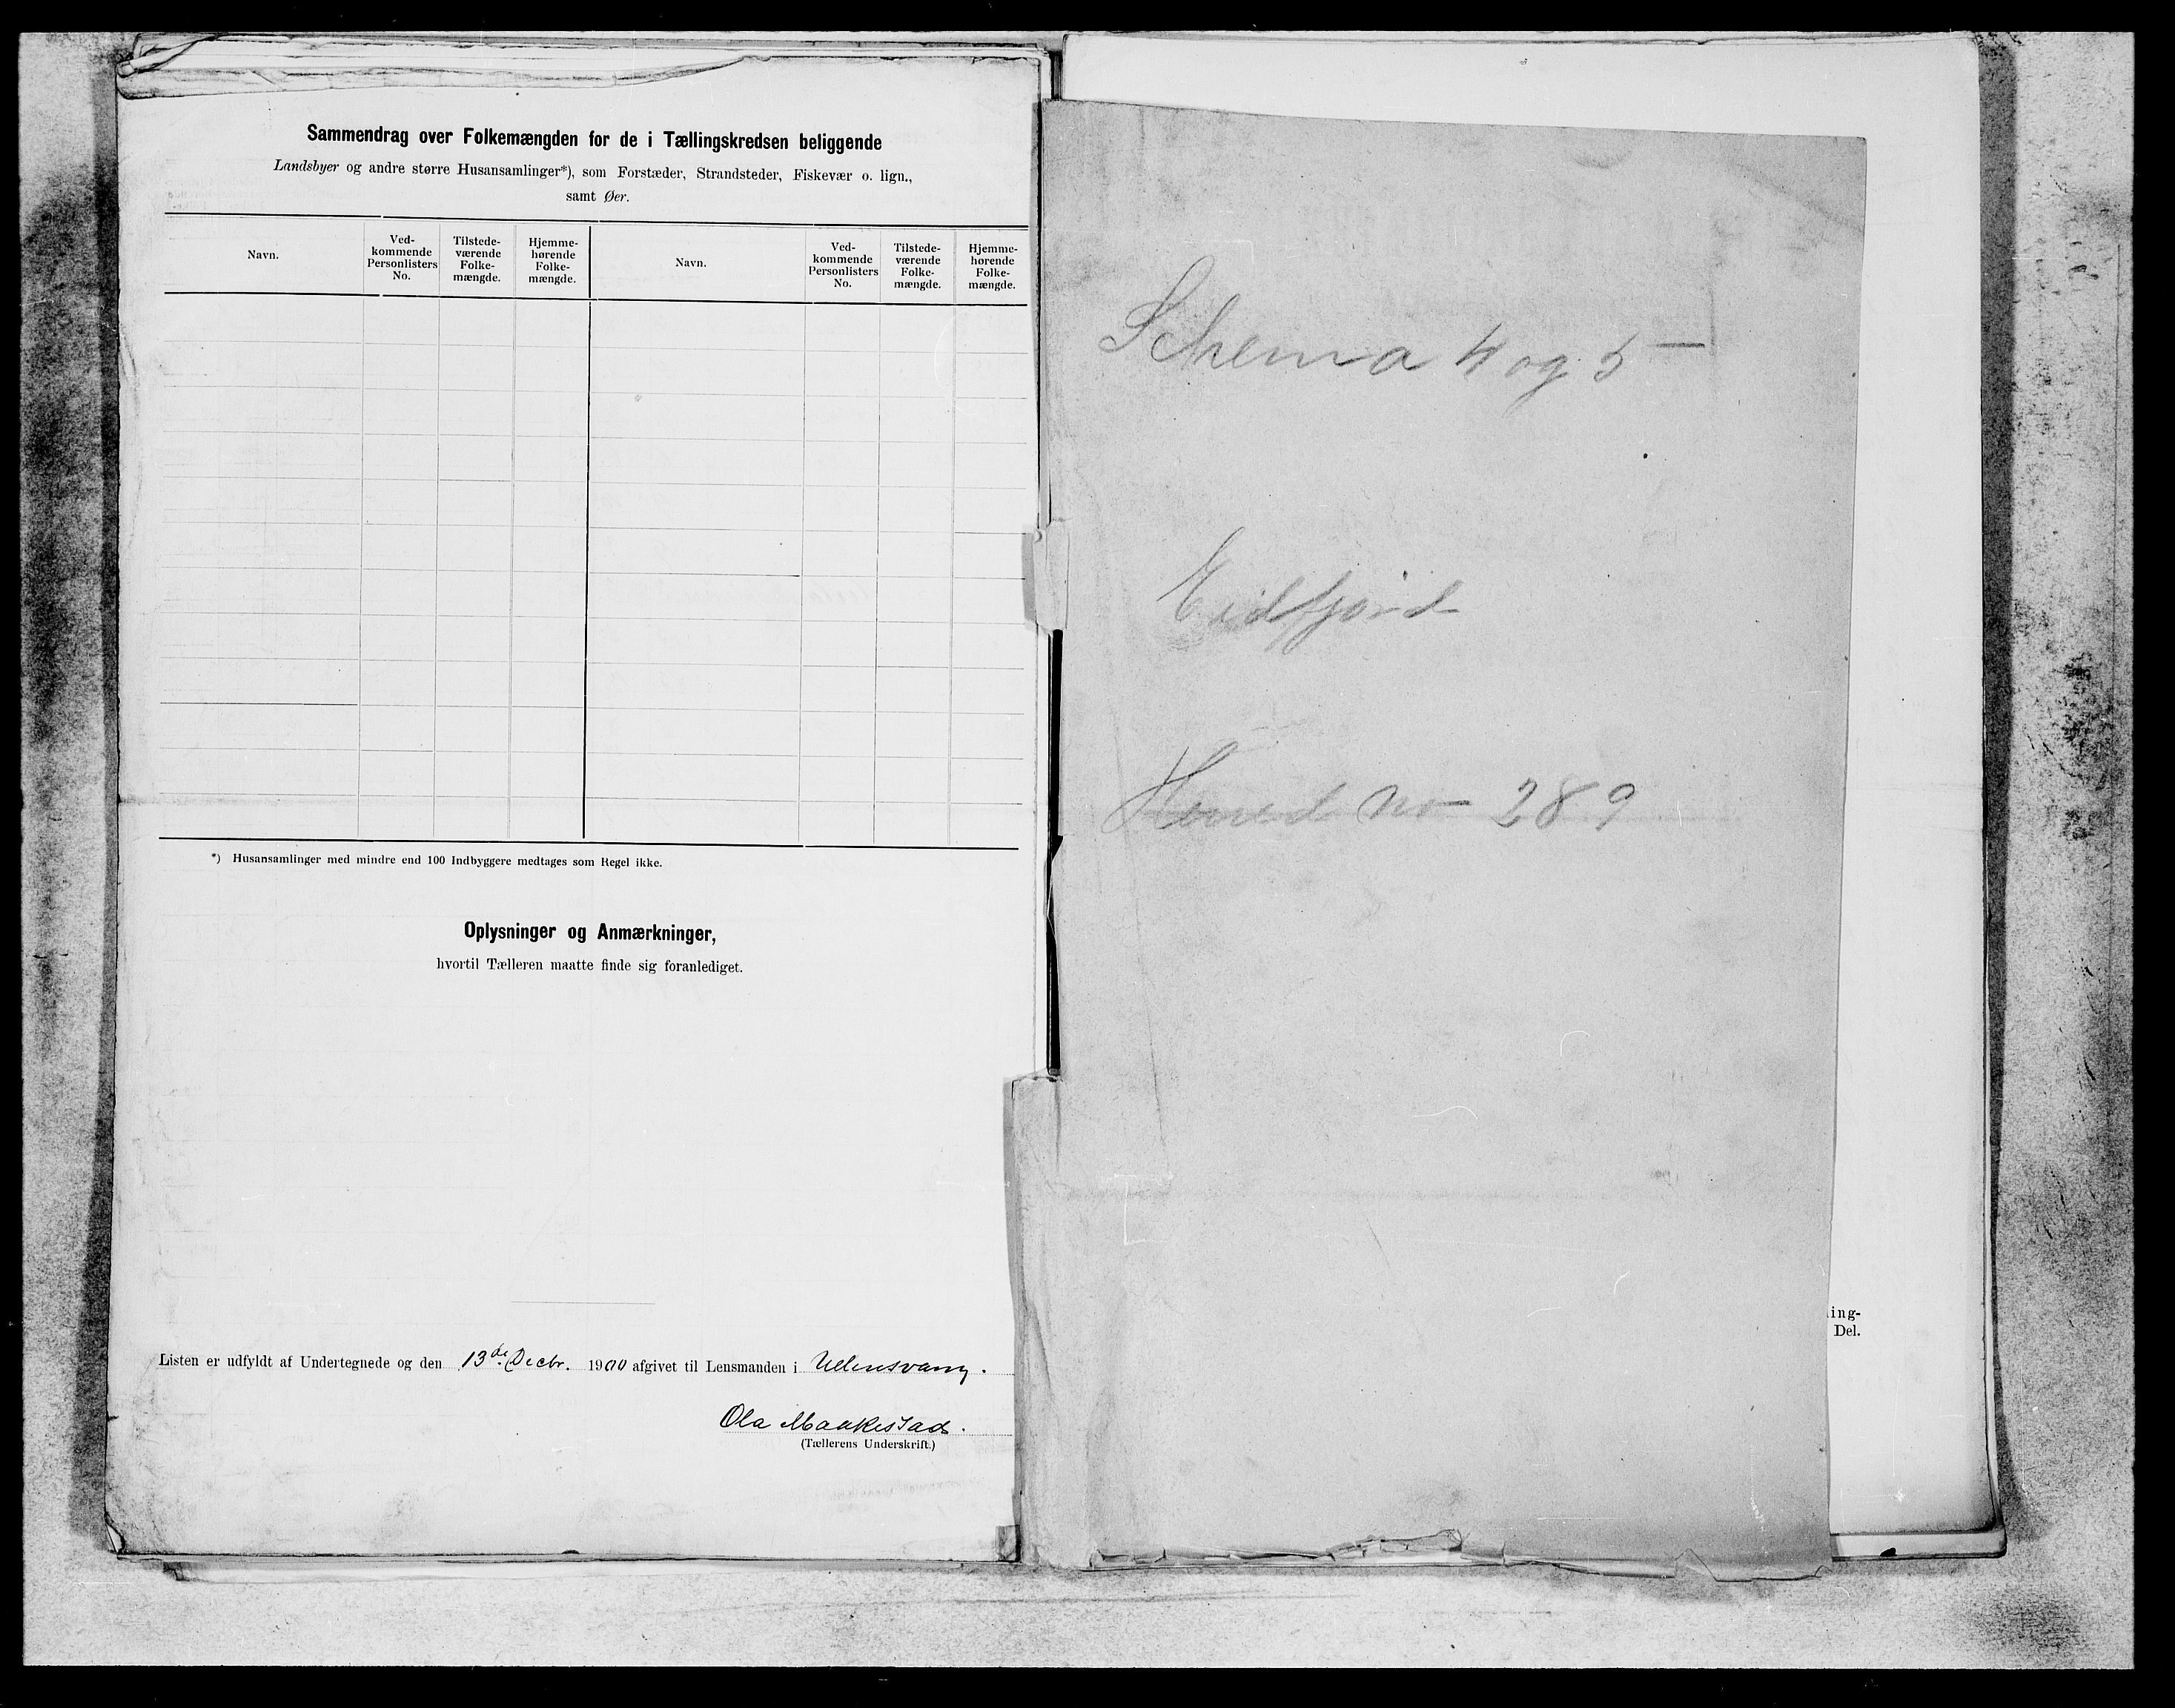 Sammendrag over Folkemængden for de i Tællingskredsen beliggende
Landsbyer og andre større Husansamlinger*), som Forstæder, Strandsteder, Fiskevær o. lign.,
samt Øer.
Navn.
Ved-
kommende
Personlisters
No.
Tilstede-
værende
Folke-
mængde.
Hjemme-
hørende
Folke-
mængde.
Navn.
Ved-
kommende
Personlisters
No.
Tilstede-
værende
Folke-
mængde.
Hjemme-
hørende
Folke-
mængde.
*) Husansamlinger med mindre end 100 Indbyggere medtages som Regel ikke.
Oplysninger og Anmærkninger,
hvortil Tælleren maatte finde sig foranlediget.
Listen er udfyldt af Undertegnede og den 13de Decbr. 1900 afgivet til Lensmanden i Ullensvang.
Ola Maakestad.
(Tællerens Underskrift.)
Schema 4 og 5 —
Eidfjord
Herred no 289
ing-
Del.